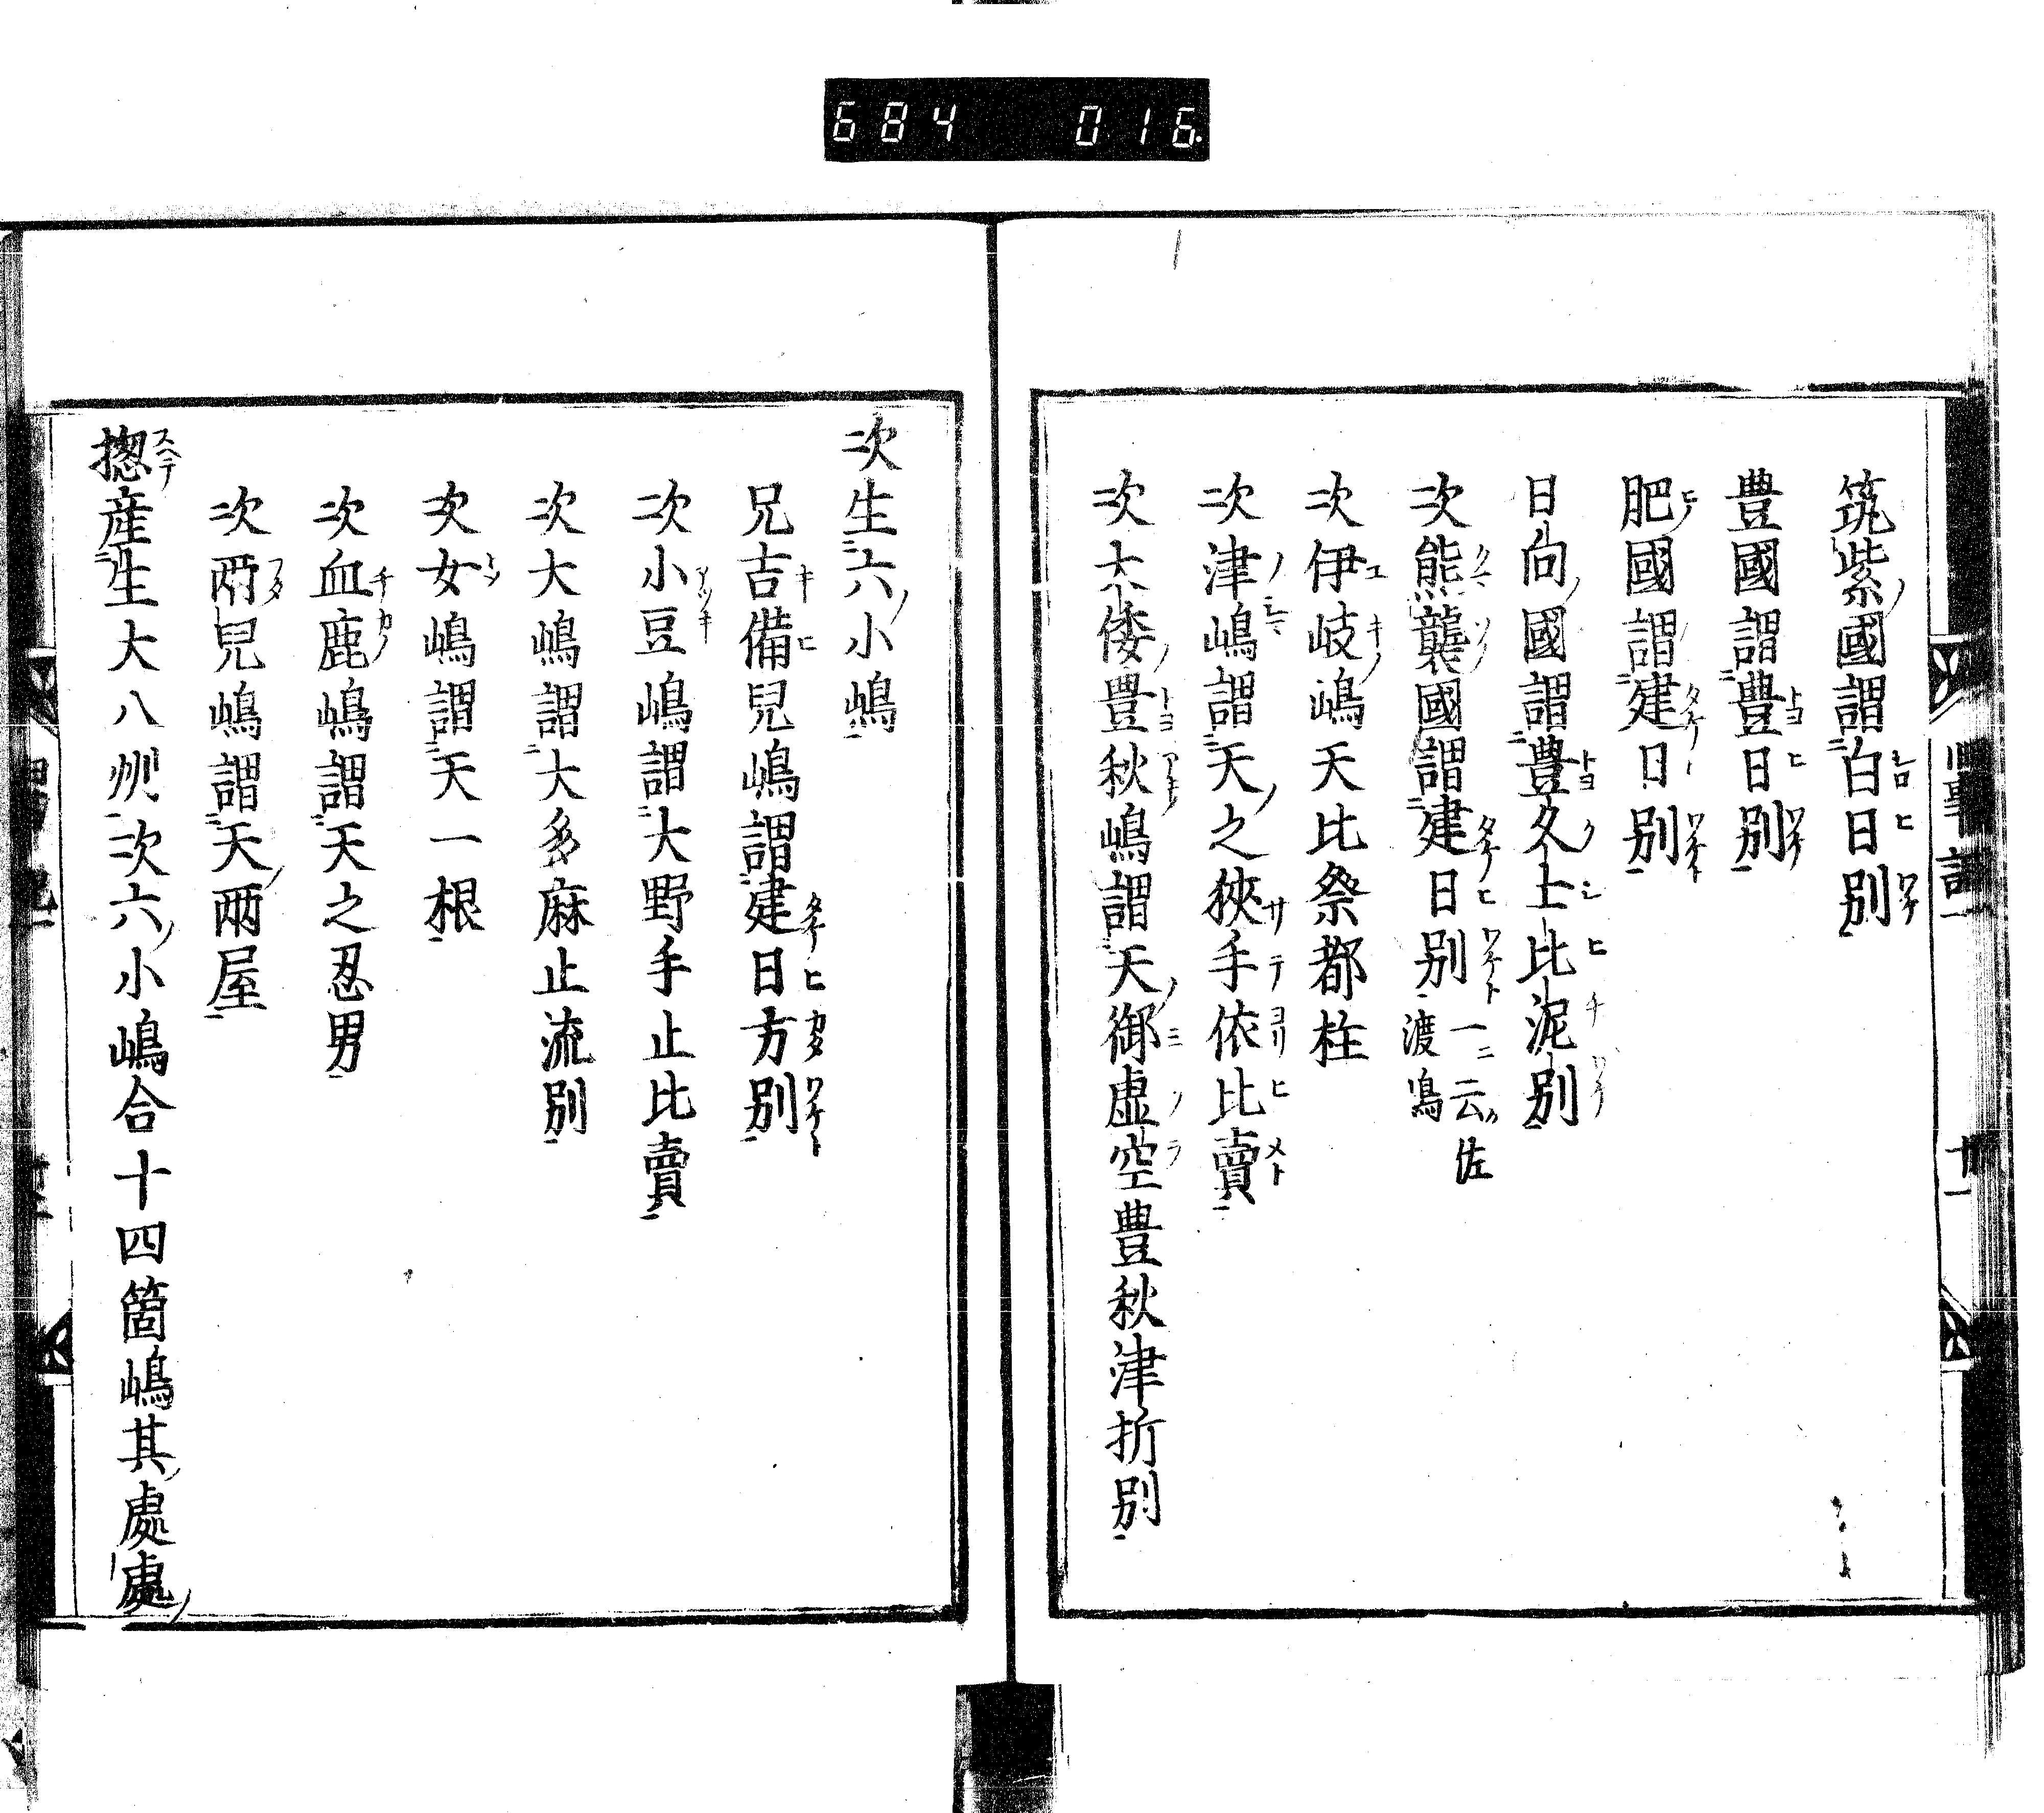 684 016
筑紫國謂白日別
豊國謂豊日別
肥國謂建日別
日向國謂豊久士比泥別
次熊襲國謂建日別 一云佐渡嶋
次伊岐嶋天比祭都柱
次津嶋謂天之狹手依比賣
次大倭豊秋嶋謂天御虚空豊秋津折別
次生六小嶋
兄吉備兒嶋謂建日方別
次小豆嶋謂大野手止比賣
次大嶋謂大多麻止流別
次女嶋謂天一根
次血鹿嶋謂天之忍男
次兩兒嶋謂天兩屋
揔産生大八州次六小嶋合十四箇嶋其處處